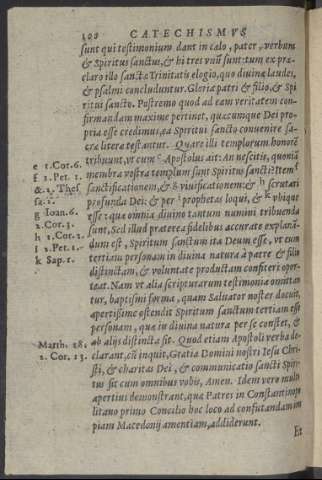 100 CATECHISMVS
sunt qui testimonium dant in cælo, pater, verbum
& Spiritus sanctus, & hi tres vnū sunt: tum ex præ-
claro illo sanctæ Trinitatis elogio, quo diuinæ laudes,
& psalmi concluduntur. Gloria patri & filio, & Spi
ritui sancto. Postremo quod ad eam veritatem con-
firmandam maxime pertinet, quæcumque Dei pro-
pria esse credimus, ea Spiritui sancto conuenire sa-
cræ literæ testantur. Quare illi templorum honorē
e 1.Cor.6. tribuunt, vt cum e Apostolus ait: An nescitis, quoniā
f 1.Pet. 1. membra vestra templum sunt Spiritus sancti? Item f
& 2. Thes sanctificationem, & g viuificationem: & h scrutari
sa.2. profunda Dei: & per i prophetas loqui, & k vbique
g Ioan.6. esse: quæ omnia diuino tantum numini tribuenda
2.Cor.3. sunt, Sed illud præterea fidelibus accurate explanā-
h 1.Cor.2. dum est, Spiritum sanctum ita Deum esse, vt eum
i 2.Pet.1. tertiam personam in diuina natura a patre & filio
k Sap.1. distinctam, & voluntate productam confiteri opor-
teat. Nam vt alia scripturarum testimonia omittan
tur, baptismi forma, quam Saluator noster docuit,
apertissime ostendit Spiritum sanctum tertiam esse
personam, quæ in diuina natura per se constet, &
Matth. 28. ab alijs distincta sit. Quod etiam Apostoli verba de-
2. Cor. 13. clarant, cū inquit, Gratia Domini nostri Iesu Chri-
sti, & charitas Dei, & communicatio sancti Spiri-
tus sit cum omnibus vobis, Amen. Idem vero multo
apertius demonstrant, quæ Patres in Constantinopo
litano primo Concilio hoc loco ad confutandam im
piam Macedonij amentiam, addiderunt.
Et